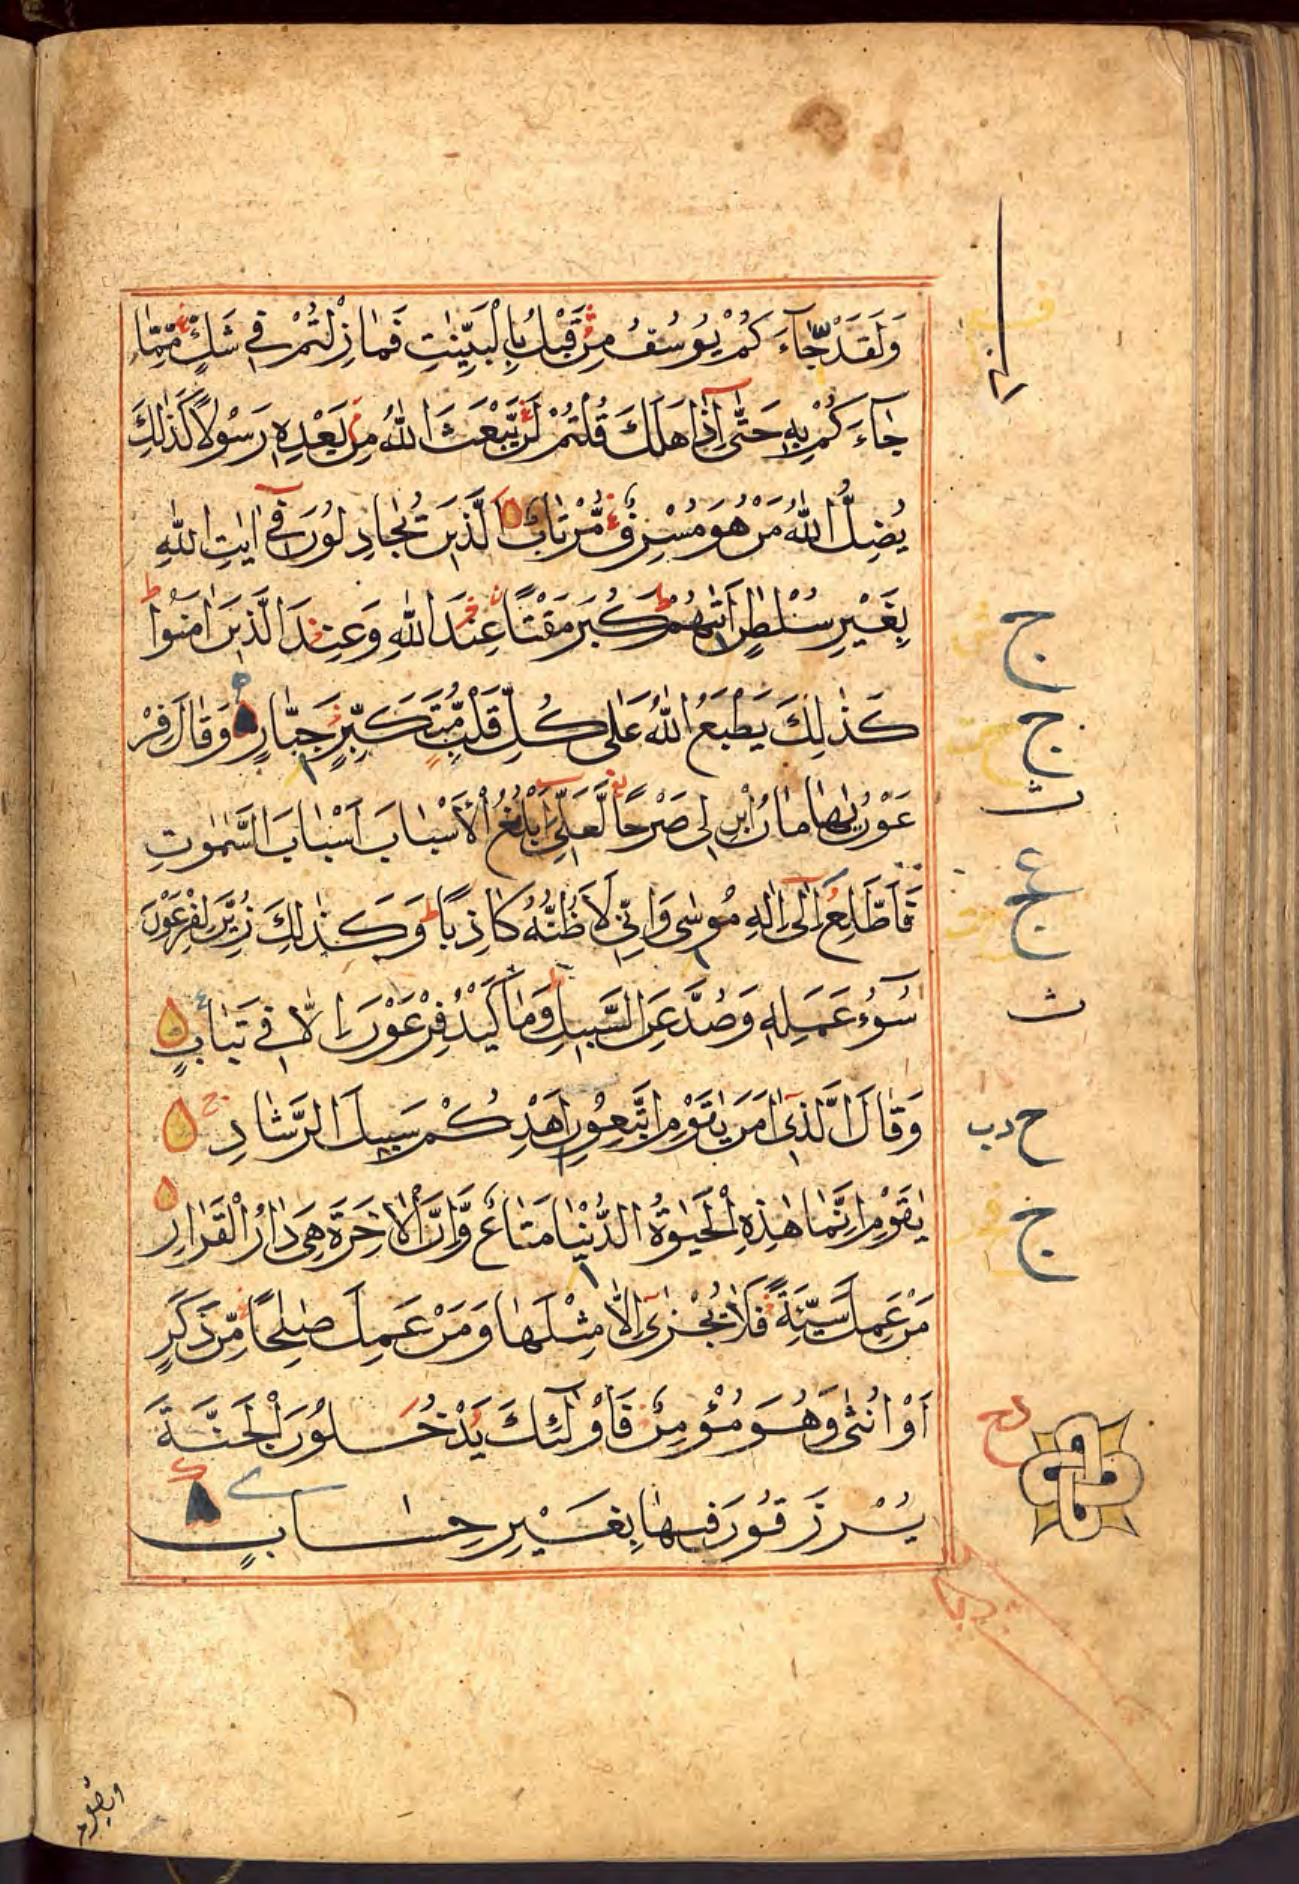 وَلَقَدْ جَآءَ كُمْ يُوْسُفُ مِنْ قَبْلُ بِالْبَيِّنٰتِ فَمَا زِلْتُمْ فِيْ شَكٍّ مِّمَّا
جَآءَ كُمْ بِهٖ حَتّٰىٓ اِذَا هَلَكَ قُلْتُمْ لَنْ يَّبْعَثَ اللّٰهُ مِنْ بَعْدِهٖ رَسُوْلًا كَذٰلِكَ
يُضِلُّ اللّٰهُ مَنْ هُوَ مُسْرِفٌ مُّرْتَابٌ الَّذِيْنَ يُجَادِلُوْنَ فِيْٓ اٰيٰتِ اللّٰهِ
بِغَيْرِ سُلْطٰنٍ اَتٰىهُمْ كَبُرَ مَقْتًا عِنْدَ اللّٰهِ وَعِنْدَ الَّذِيْنَ اٰمَنُوْا ط
كَذٰلِكَ يَطْبَعُ اللّٰهُ عَلٰى كُلِّ قَلْبِ مُتَكَبِّرٍ جَبَّارٍ وَقَالَ فِرْ
عَوْنُ يٰهَامَانُ ابْنِ لِيْ صَرْحًا لَّعَلِّيْٓ اَبْلُغُ الْاَسْبَابَ اَسْبَابَ السَّمٰوٰتِ
فَاَطَّلِعَ اِلٰىٓ اِلٰهِ مُوْسٰى وَاِنِّيْ لَاَظُنُّهٗ كَاذِبًا ط وَكَذٰلِكَ زُيِّنَ لِفِرْعَوْنَ
سُوْٓءُ عَمَلِهٖ وَصُدَّ عَنِ السَّبِيْلِ ط وَمَا كَيْدُ فِرْعَوْنَ اِلَّا فِيْ تَبَابٍ
وَقَالَ الَّذِيْٓ اٰمَنَ يَا قَوْمِ اتَّبِعُوْنِ اَهْدِكُمْ سَبِيْلَ الرَّشَادِ
يٰقَوْمِ اِنَّمَا هٰذِهِ الْحَيٰوةُ الدُّنْيَا مَتَاعٌ وَّاِنَّ الْاٰخِرَةَ هِيَ دَارُ الْقَرَارِ
مَنْ عَمِلَ سَيِّئَةً فَلَا يُجْزٰىٓ اِلَّا مِثْلَهَا وَمَنْ عَمِلَ صٰلِحًا مِّنْ ذَكَرٍ
اَوْ اُنْثٰى وَهُوَ مُؤْمِنٌ فَاُولٰٓئِكَ يَدْخُلُوْنَ الْجَنَّةَ
يُرْزَقُوْنَ فِيْهَا بِغَيْرِ حِسَابٍ
ج
ج
ث
ع
ج
ث
ح دب
ج